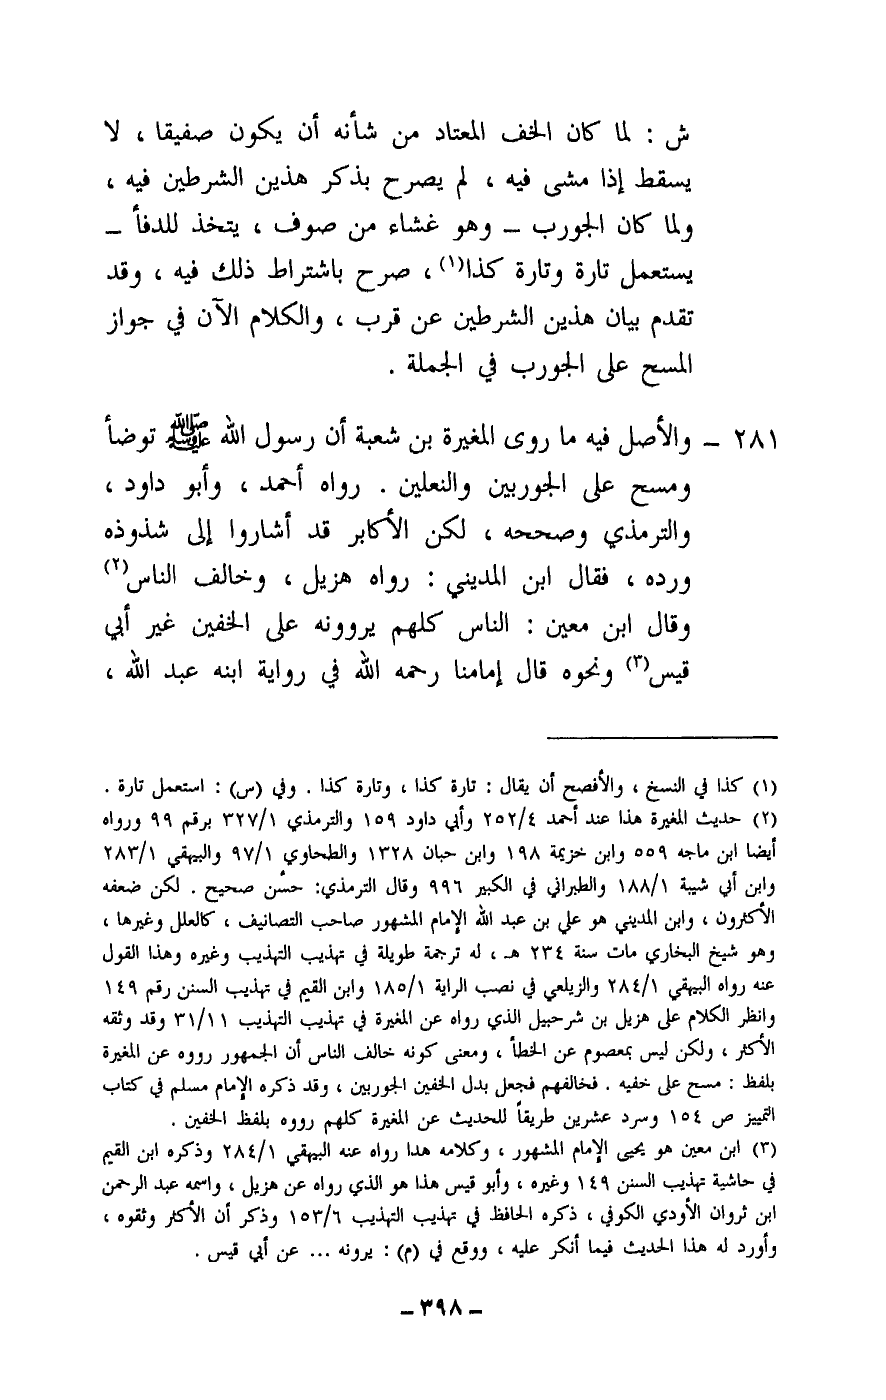 ش : لما كان الخف المعتاد من شأنه أن يكون صفيقا ، لا
يسقط إذا مشى فيه ، لم يصرح بذكر هذين الشرطين فيه ،
ولما كان الجورب – وهو غشاء من صوف ، يتخذ للدفأ –
يستعمل تارة وتارة كذا(١) ، صرح باشتراط ذلك فيه ، وقد
تقدم بيان هذين الشرطين عن قرب ، والكلام الآن في جواز
المسح على الجورب في الجملة .
٢٨١ – والأصل فيه ما روى المغيرة بن شعبة أن رسول الله ﷺ توضأ
ومسح على الجوربين والنعلين . رواه أحمد ، وأبو داود ،
والترمذي وصححه ، لكن الأكابر قد أشاروا إلى شذوذه
ورده ، فقال ابن المديني : رواه هزيل ، وخالف الناس(٢)
وقال ابن معين : الناس كلهم يروونه على الخفين غير أبي
قيس(٣) ونحوه قال إمامنا رحمه الله في رواية ابنه عبد الله ،
(١) كذا في النسخ ، والأفصح أن يقال : تارة كذا ، وتارة كذا . وفي (س) : استعمل تارة .
(٢) حديث المغيرة هذا عند أحمد ٢٥٢/٤ وأبي داود ١٥٩ والترمذي ٣٢٧/١ برقم ٩٩ ورواه
أيضا ابن ماجه ٥٥٩ وابن خزيمة ١٩٨ وابن حبان ١٣٢٨ والطحاوي ٩٧/١ والبيهقي ٢٨٣/١
وابن أبي شيبة ١٨٨/١ والطبراني في الكبير ٩٩٦ وقال الترمذي: حسن صحيح . لكن ضعفه
الأكثرون ، وابن المديني هو علي بن عبد الله الإمام المشهور صاحب التصانيف ، كالعلل وغيرها ،
وهو شيخ البخاري مات سنة ٢٣٤ هـ ، له ترجمة طويلة في تهذيب التهذيب وغيره وهذا القول
عنه رواه البيهقي ٢٨٤/١ والزيلعي في نصب الراية ١٨٥/١ وابن القيم في تهذيب السنن رقم ١٤٩
وانظر الكلام على هزيل بن شرحبيل الذي رواه عن المغيرة في تهذيب التهذيب ٣١/١١ وقد وثقه
الأكثر ، ولكن ليس بمعصوم عن الخطأ ، ومعنى كونه خالف الناس أن الجمهور رووه عن المغيرة
بلفظ : مسح على خفيه . فخالفهم فجعل بدل الخفين الجوربين ، وقد ذكره الإمام مسلم في كتاب
التمييز ص ١٥٤ وسرد عشرين طريقاً للحديث عن المغيرة كلهم رووه بلفظ الخفين .
(٣) ابن معين هو يحيى الإمام المشهور ، وكلامه هدا رواه عنه البيهقي ٢٨٤/١ وذكره ابن القيم
في حاشية تهذيب السنن ١٤٩ وغيره ، وأبو قيس هذا هو الذي رواه عن هزيل ، واسمه عبد الرحمن
ابن ثروان الأودي الكوفي ، ذكره الحافظ في تهذيب التهذيب ١٥٣/٦ وذكر أن الأكثر وثقوه ،
وأورد له هذا الحديث فيما أنكر عليه ، ووقع في (م) : يرونه ... عن أبي قيس .
– ٣٩٨ –